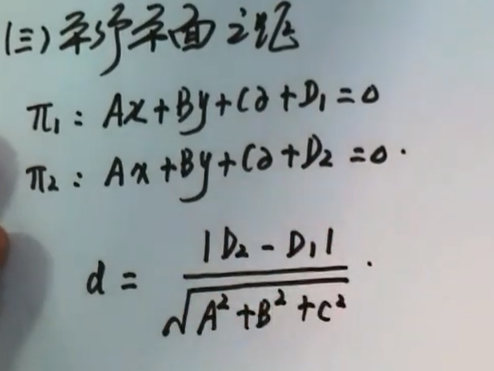 (三)平行平面之距
π₁: Ax+By+Cz+D₁=0
π₂: Ax+By+Cz+D₂=0.
d = |D₂-D₁| / √(A²+B²+C²).